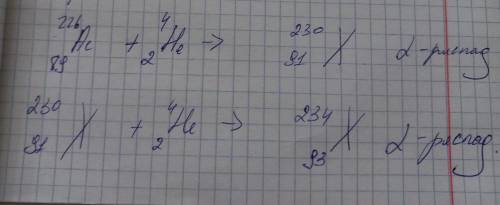 ²²⁶₈₉Ac + ⁴₂He → ²³⁰₉₁X α-распад
²³⁰₉₁X + ⁴₂He → ²³⁴₉₃X α-распад.